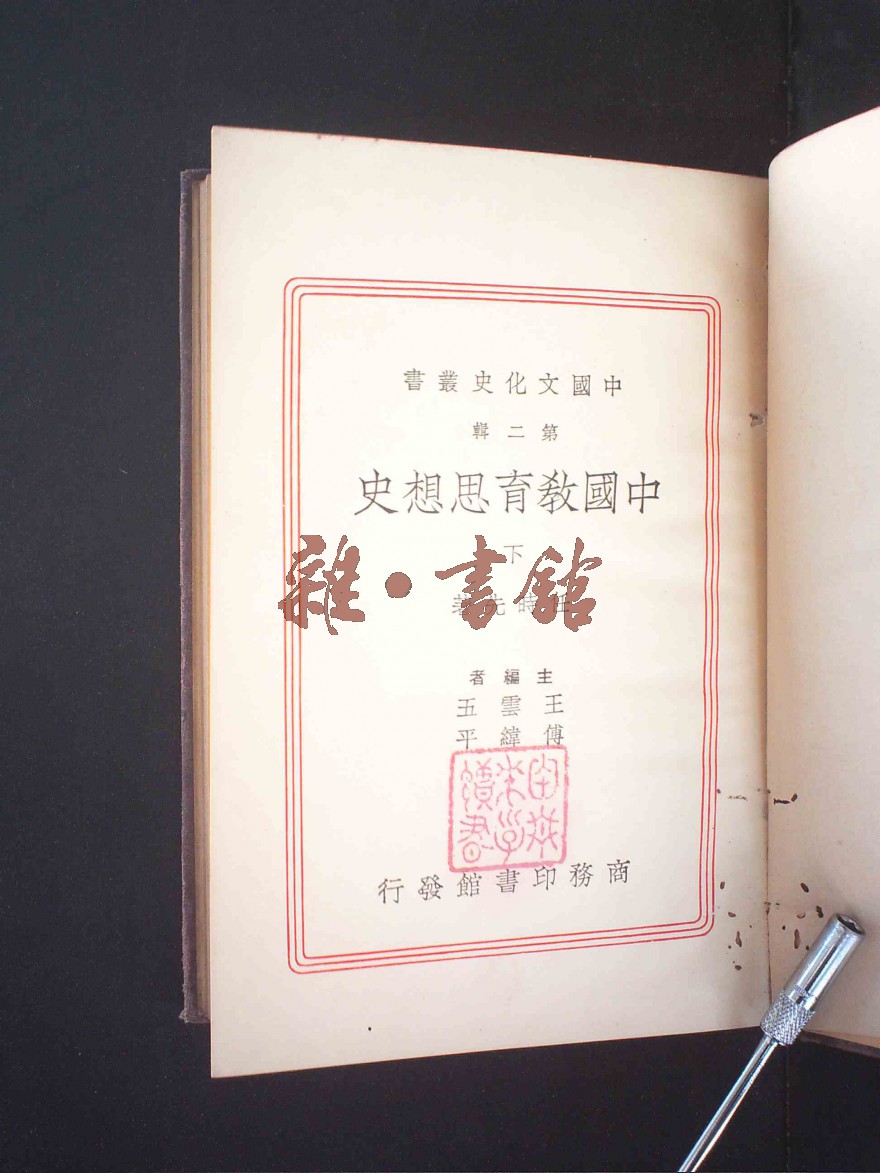 中國文化史叢書
第二輯
中國教育思想史
下
任時先著
雜·書館
主編者
王雲五
傅緯平
商務印書館發行